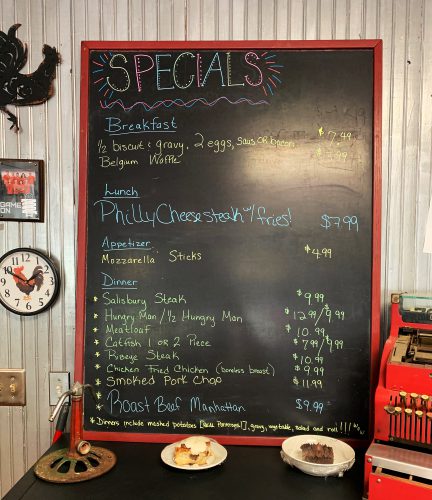 SPECIALS
Breakfast
1/2 biscuit & gravy, 2 eggs, saus OR bacon $7.99
Belgium Waffle $7.99
Lunch
Philly Cheesesteak w/ fries! $7.99
Appetizer
Mozzarella Sticks $4.99
Dinner
* Salisbury Steak $9.99
* Hungry Man / 1/2 Hungry Man $12.99/9.99
* Meatloaf $10.99
* Catfish 1 or 2 Piece $7.99/9.99
* Ribeye Steak $10.99
* Chicken Fried Chicken (boneless breast) $9.99
* Smoked Pork Chop $11.99
* Roast Beef Manhattan $9.99
* Dinners include mashed potatoes gravy, vegetable, salad and roll!!!
GAME
ON